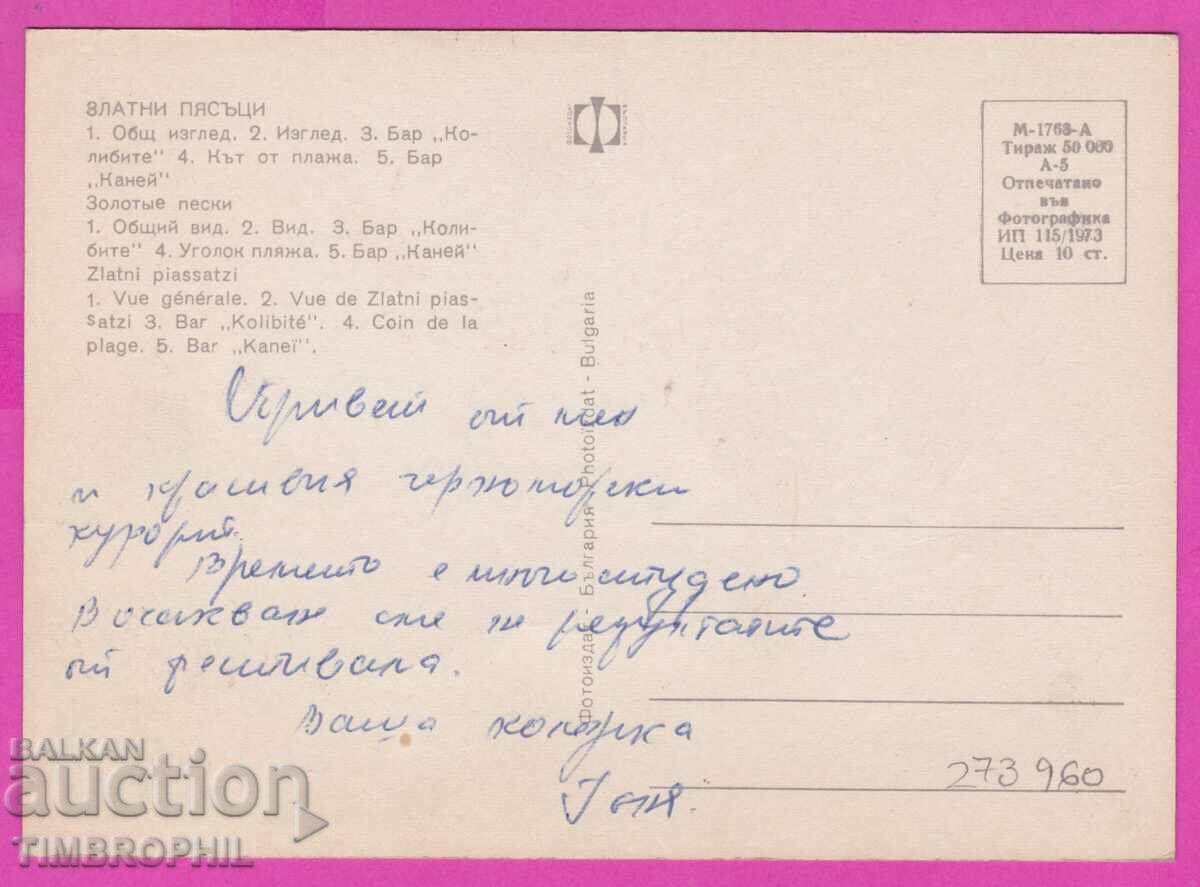 ЗЛАТНИ ПЯСЪЦИ
1. Общ изглед. 2. Изглед. 3. Бар „Ко-
либите" 4. Кът от плажа. 5. Бар
„Каней"
Золотые пески
1. Общий вид. 2. Вид. 3. Бар „Коли-
бите" 4. Уголок пляжа. 5. Бар „Каней"
Zlatni piassatzi
1. Vue générale. 2. Vue de Zlatni pias-
satzi 3. Bar „Kolibité". 4. Coin de la
plage. 5. Bar „Kaneï".
М-1768-А
Тираж 50 000
А-5
Отпечатано
във
Фотографика
ИП 115/1973
Цена 10 ст.
Фотоиздат - България Photoizdat - Bulgaria
от
и красивия черноморски
курорт.
Времето е много студено
В очакване сме на резултатите
от фестивала.
Ваша
273 960
BALKAN
auction
TIMBROPHIL